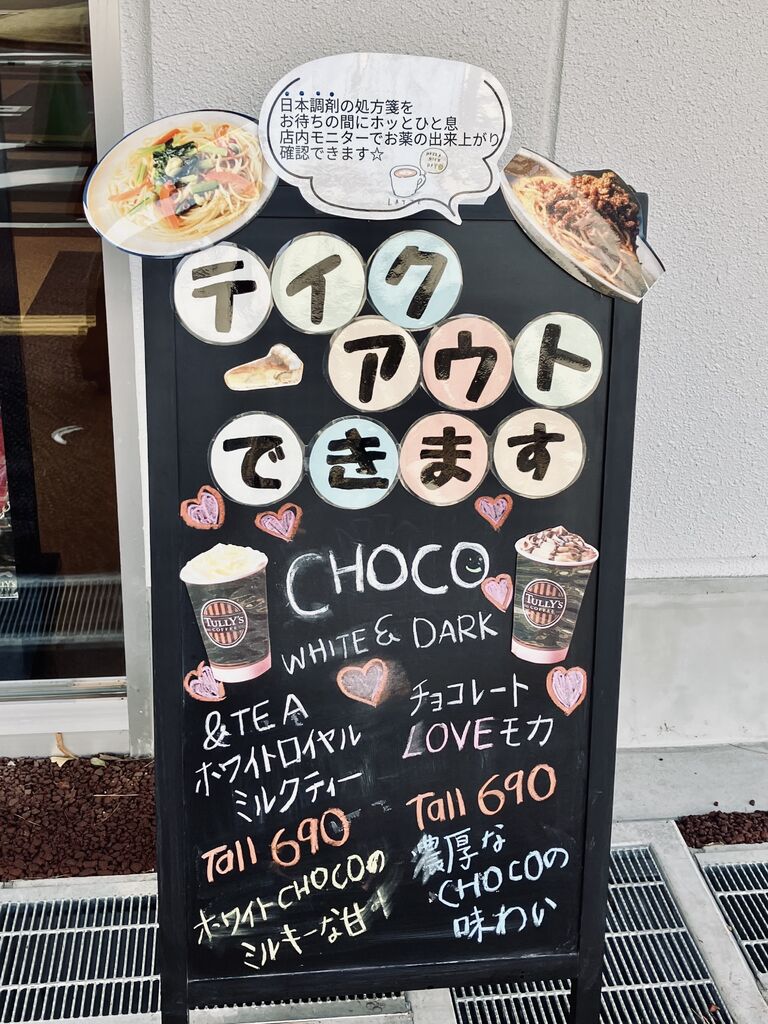 日本調剤の処方箋を
お待ちの間にホッとひと息
店内モニターでお薬の出来上がり
確認できます☆
テイク
アウト
できます
CHOCO
WHITE & DARK
TULLY'S
COFFEE
TULLY'S
COFFEE
&TEA
ホワイトロイヤル
ミルクティー
Tall 690
ホワイトCHOCOの
ミルキーな甘
チョコレート
LOVEモカ
Tall 690
濃厚な
CHOCOの
味わい